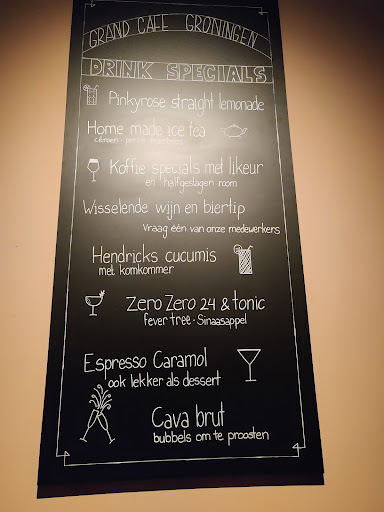 GRAND CAFE GRONINGEN
DRINK SPECIALS
Pinkyrose straight lemonade
Home made ice tea
citroen - perzik - framboos
Koffie specials met likeur
en halfgeslagen room
Wisselende wijn en biertip
Vraag één van onze medewerkers
Hendricks cucumis
met komkommer
Zero Zero 24 & tonic
fever tree - Sinaasappel
Espresso Caramol
ook lekker als dessert
Cava brut
bubbels om te proosten